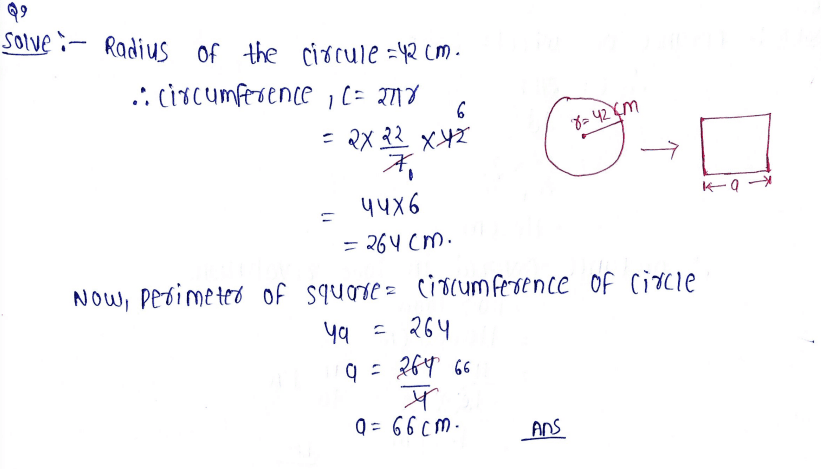 Q9
Solve :- Radius of the circule = 42 cm.
∴ circumference, C = 2πr
= 2 × 22/7 × 42 6
1
r = 42 cm
= 44 × 6
= 264 cm.
a
Now, perimeter of square = circumference of circle
4a = 264
a = 264/4 66
a = 66 cm. Ans